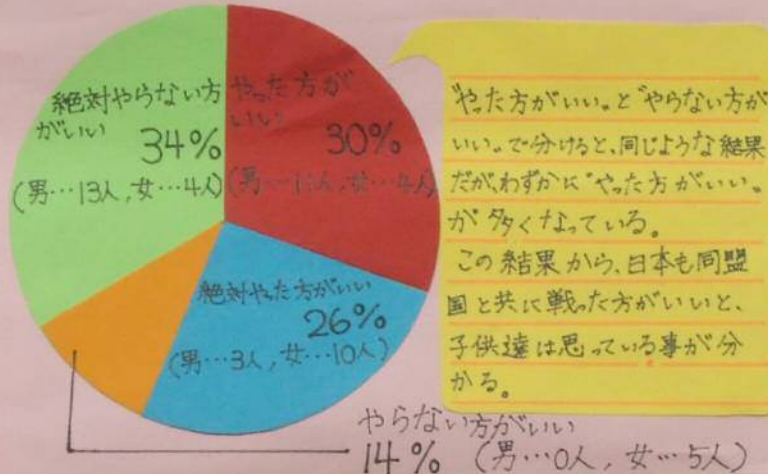 絶対やらない方
がいい
34%
(男…13人,女…4人)
やった方が
いい
30%
(男…11人,女…4人)
絶対やった方がいい
26%
(男…3人,女…10人)
やらない方がいい
14% (男…0人,女…5人)
“やった方がいい。と“やらない方が
いい。で分けると、同じような結果
だが、わずかに“やった方がいい。
が多くなっている。
この結果から、日本も同盟
国と共に戦った方がいいと、
子供達は思っている事が分
かる。